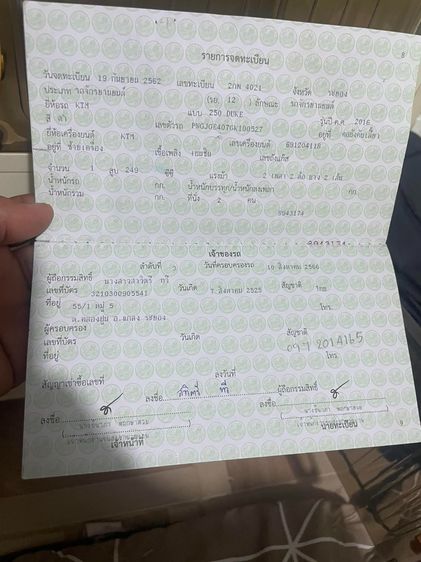 8
รายการจดทะเบียน
วันจดทะเบียน 19 กันยายน 2562 เลขทะเบียน 2กผ 4021 จังหวัด ระยอง
ประเภท รถจักรยานยนต์ (รย. 12 ) ลักษณะ รถจักรยานยนต์
ยี่ห้อรถ KTM แบบ 250 DUKE รุ่นปี ค.ศ. 2016
สี ดำ เลขตัวรถ อยู่ที่ คอบังคับเลี้ยว
ยี่ห้อเครื่องยนต์ KTM เลขเครื่องยนต์
อยู่ที่ ข้างเครื่อง เชื้อเพลิง เบนซิน เลขถังแก๊ส
จำนวน 1 สูบ 249 ซีซี แรงม้า 2 เพลา 2 ล้อ ยาง 2 เส้น
น้ำหนักรถ กก. น้ำหนักบรรทุก/น้ำหนักลงเพลา กก.
น้ำหนักรวม กก. ที่นั่ง 2 คน
8943174
เจ้าของรถ
ลำดับที่ 2 วันที่ครอบครองรถ 10 สิงหาคม 2566
ผู้ถือกรรมสิทธิ์ นางสาวสาวิตรี
เลขที่บัตร 3210300905541 วันเกิด 7 สิงหาคม 2525 สัญชาติ ไทย
ที่อยู่ 55/1 หมู่ 5 โทร.
ต.คลองปูน อ.แกลง ระยอง
ผู้ครอบครอง
เลขที่บัตร วันเกิด สัญชาติ
ที่อยู่ โทร.
สัญญาเช่าซื้อเลขที่ ลงวันที่
ลงชื่อ ผู้ถือกรรมสิทธิ์
ลงชื่อ ลงชื่อ
เจ้าหน้าที่ นายทะเบียน
9